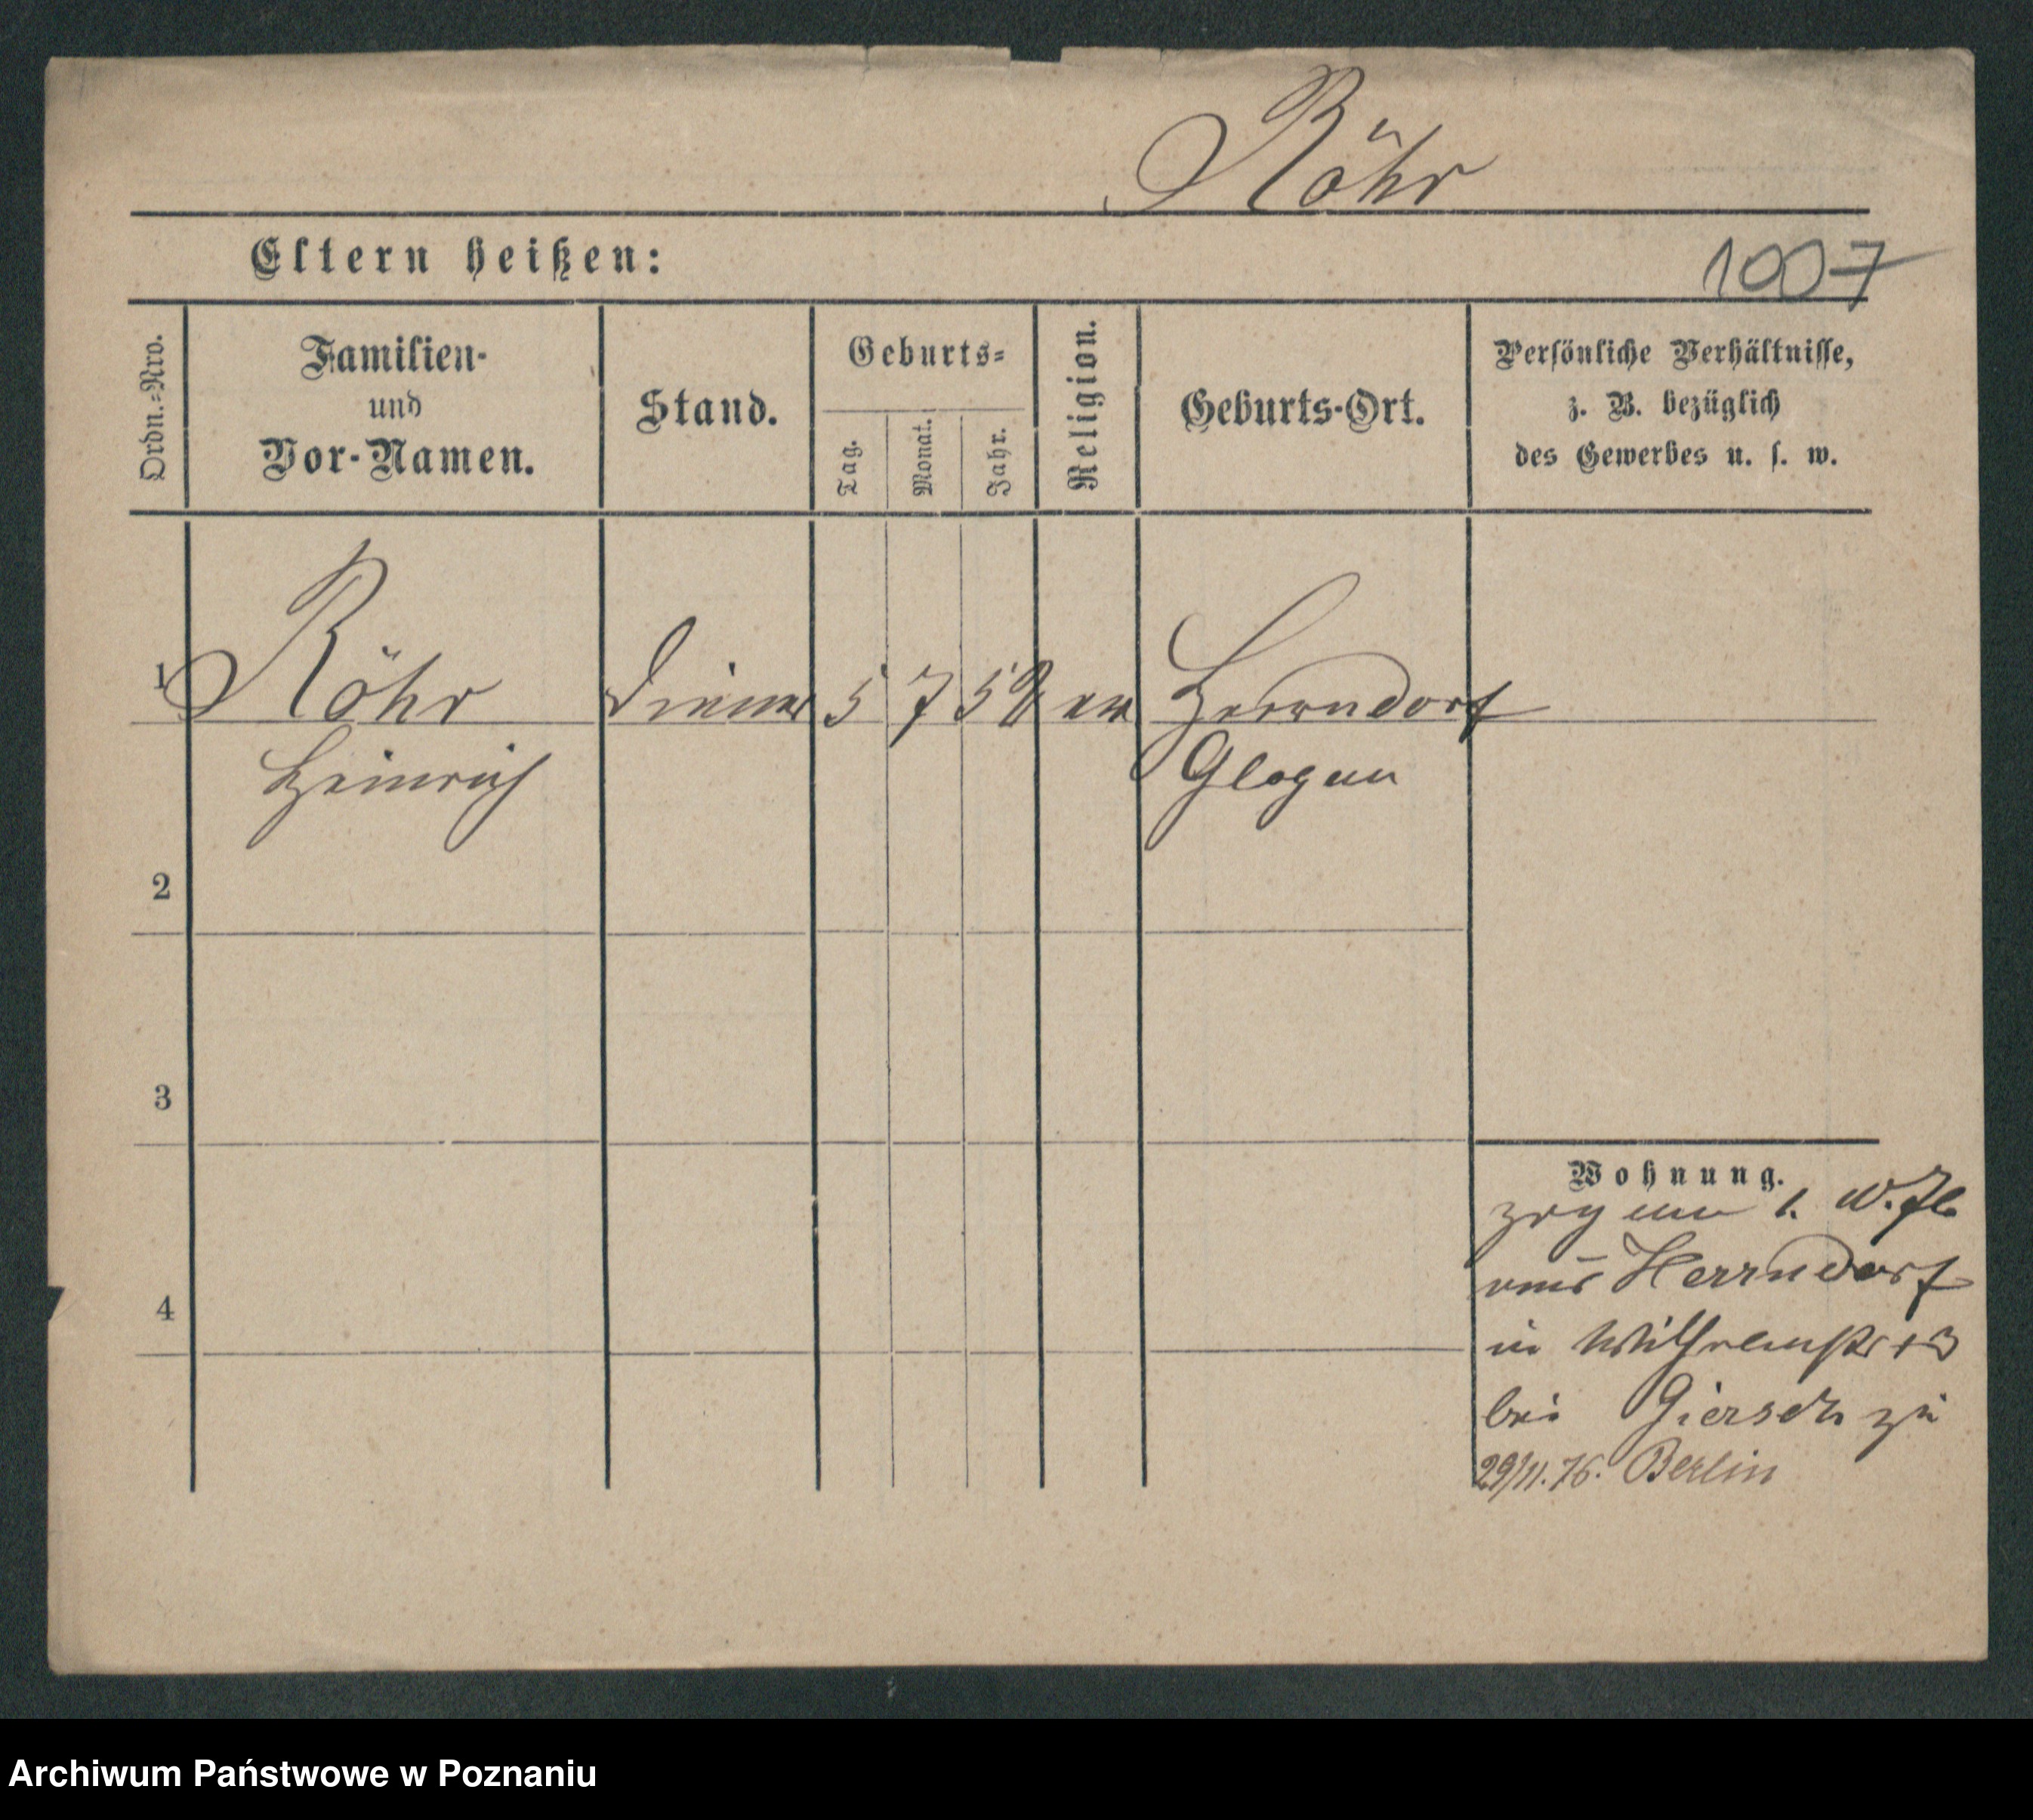 Röhr
Eltern heißen:
1007
Ordn.-Nro.
Familien-
und
Vor-Namen.
Stand.
Geburts-
Tag.
Monat.
Jahr.
Religion.
Geburts-Ort.
Persönliche Verhältnisse,
z. B. bezüglich
des Gewerbes u. s. w.
1 Röhr Diener 5 7 58 ev Herrndorf
Heinrich Glogau
2
3
4
Wohnung.
zog am 1.
aus Herrndorf
in Wilhelmstr 13
bei Giersch zu
29/11.76. Berlin
Archiwum Państwowe w Poznaniu